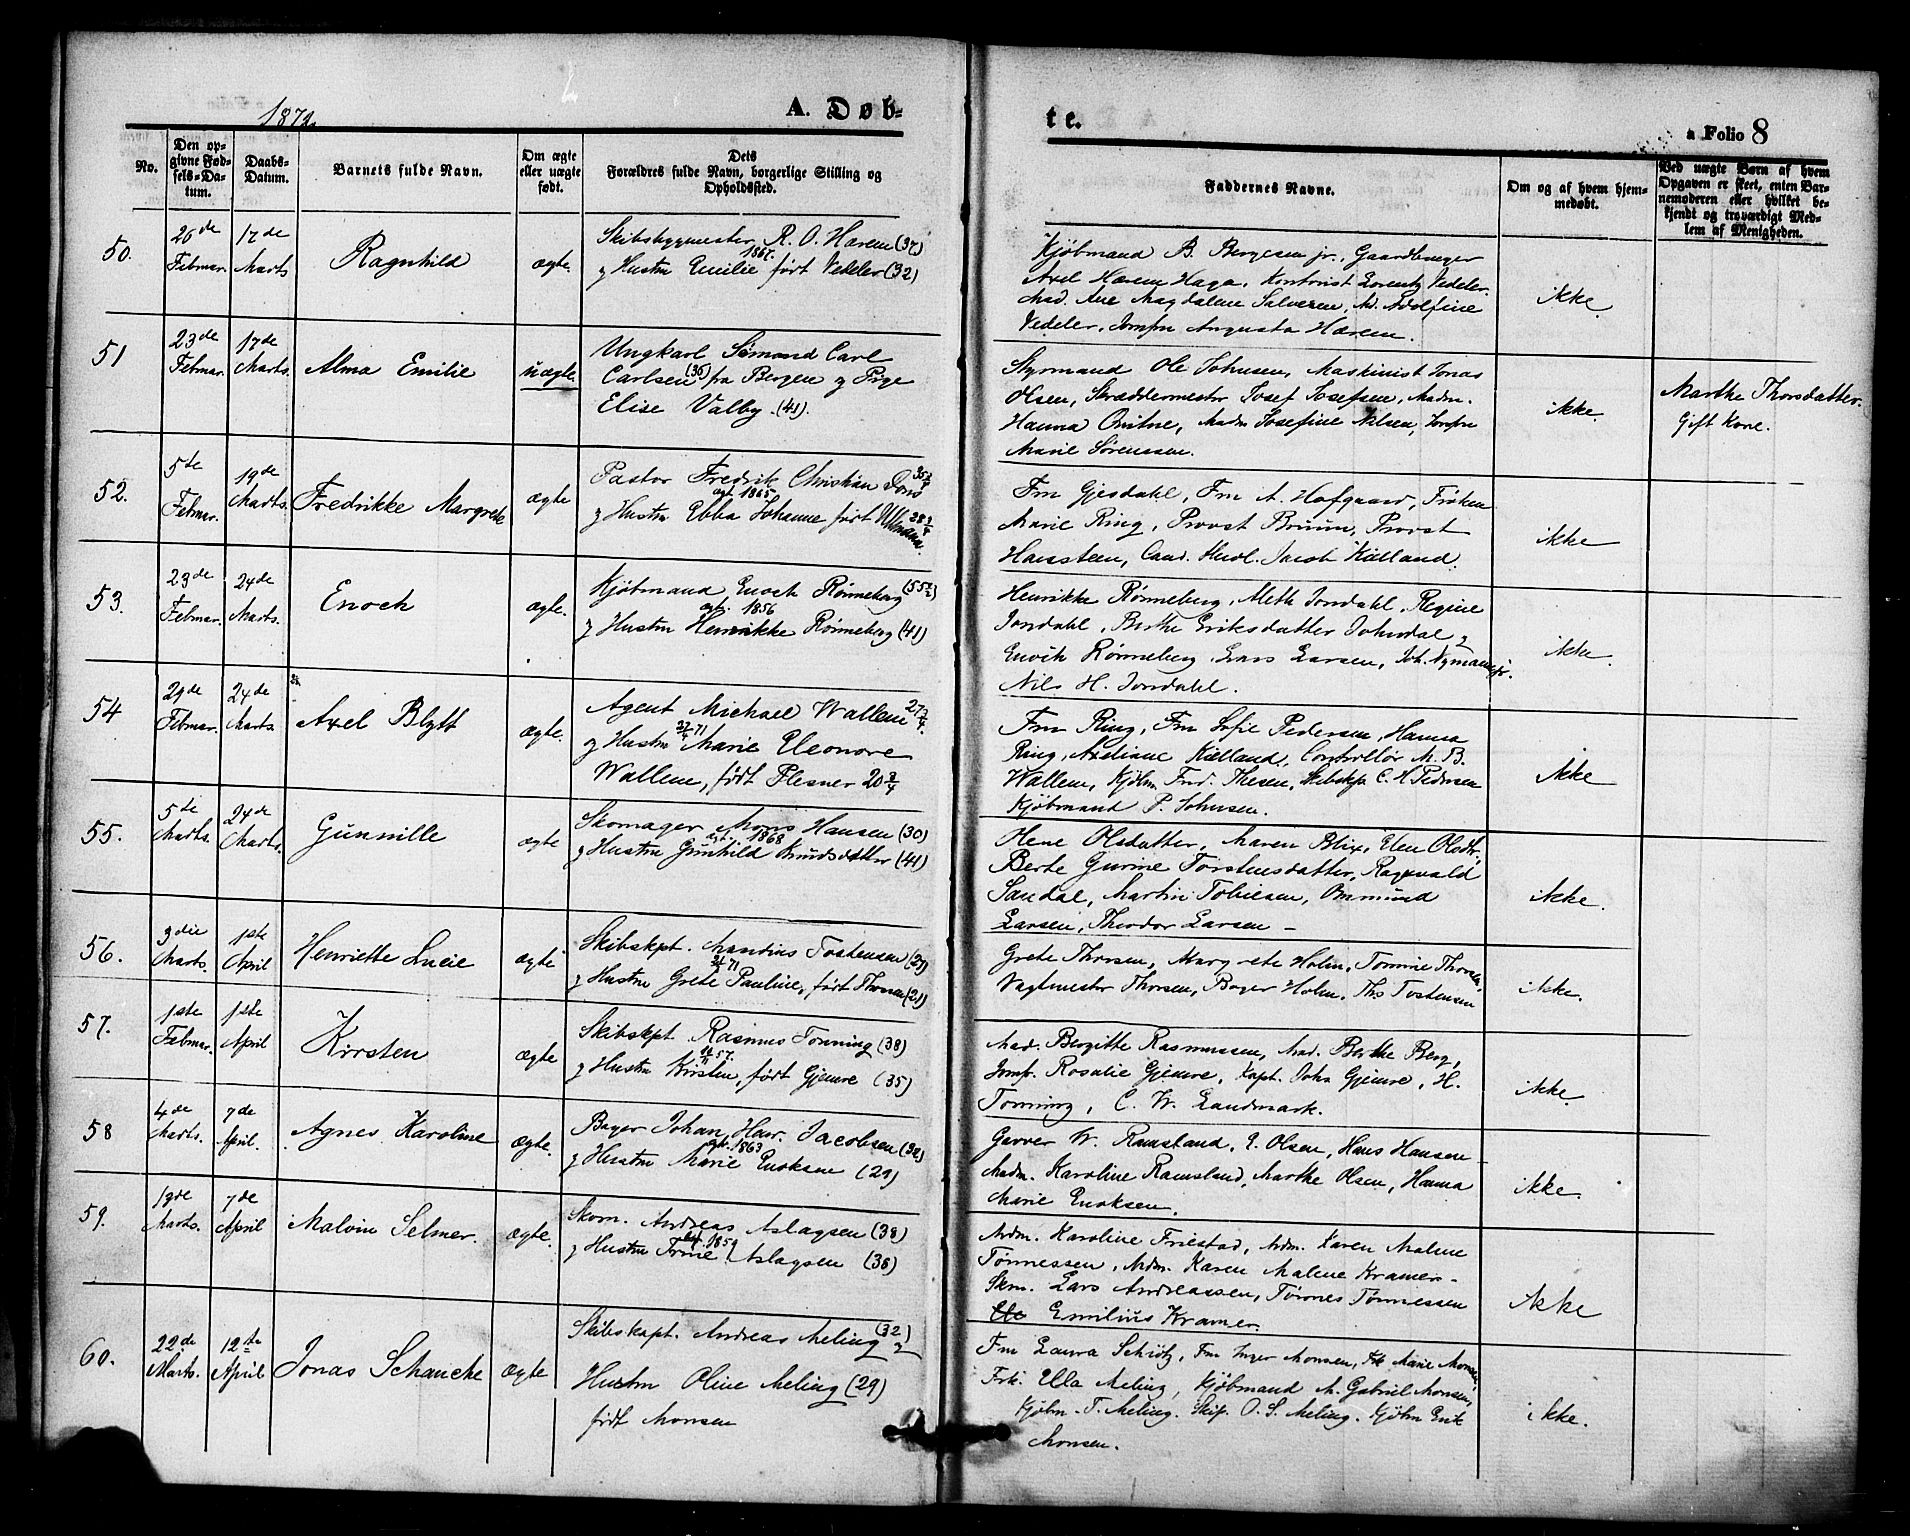 1872.
A. Døb-
te.
a Folio 8
No.
Den op-
givne Fød-
sels-Da-
tum.
Daabs-
Datum.
Barnets fulde Navn.
Om ægte
eller uægte
født.
Dets
Forældres fulde Navn, borgerlige Stilling og
Opholdssted.
Faddernes Navne.
Om og af hvem hjem-
medøbt.
Ved uægte Børn af hvem
Opgaven er skeet, enten Bar-
nemoderen eller hvilket be-
kjendt og troværdigt Med-
lem af Menigheden.
50.
26de
Februar.
17de
Marts
Ragnhild
ægte.
Skibsbygmester R. O. Hærem (37)
1867.
og Hustru Emilie født Vedeler (32)
Kjøbmand B. Bergesen jr., Gaardbruger
Axel Hærem Haga, Kontorist Lorentz Vedeler.
Mad. Ane Magdalene Salvesen, M. Adolfine
Vedeler, Jomfru Augusta Hærem.
ikke
51
23de
Februar.
17de
Marts.
Alma Emilie
uægte.
Ungkarl Simond Carl
Carlsen (36) fra Bergen og Pige
Elise Valby. (41).
Styrmand Ole Johnsen, Maskinist Jonas
Olsen, Skræddermester Josef Josefsen, Madm.
Hanna Qvitne, Madm Josefine Nilsen, Jomfru
Marie Sørenssen.
ikke.
Marthe Thorsdatter.
Gift Kone.
52.
5te
Februar.
19de
Marts.
Fredrikke Margrete
ægte
Pastor Fredrik Christian
gt. 1865
og Hustru Ebba Johanne født Ullmann.
Fru Gjesdahl, Fru A. Hofgaard, Frøken
Marie Ring, Provst Bruun, Provst
Hassteen, Cand. theol. Jacob Kielland.
ikke
53.
23de
Februar.
24de
Marts.
Enoch
ægte.
Kjøbmand Enoch Rønneberg (55½)
gt. 1856
og Hustru Henrikke Rønneberg (41)
Henrikke Rønneberg, Meth Jondahl, Regine
Jondahl, Berthe Eriksdatter Johndal og
Enoch Rønneberg, Lars Larsen, Joh. Nymann jr.
Nils H. Jondahl.
ikke.
54
29de
Februar.
24de
Marts.
Axel Blytt
ægte.
Agent Michael Wallem 27¾
71
og Hustru Marie Eleonore
Wallem, født Plesner 20¾
Fru Ring, Fru Sofie Pedersen, Hanna
Ring, Axeliane Kielland, Controllør M. B.
Wallem, Kjøbm Fred. Thesen, Skibskp. C. H. Pedersen
Kjøbmand P. Johnsen.
ikke
55.
5te
Marts.
24de
Marts.
Gunnille
ægte
Skomager Mons Hansen (30)
gt. 1868
og Hustru Gunhild Knudsdatter (41)
Olene Olsdatter, Maren Blix, Elen Olsdtr.
Berte Gurine Torstensdatter, Ragnvald
Sandal, Martin Tobiesen, Ommund
Larsen, Theodor Larsen –
ikke.
56.
3die
Marts.
1ste
April
Henriette Lucie
ægte
Skibskpt. Mandius Tostensen (27)
71
og Hustru Grete Pauline, født Thorsen (21)
Grete Thorsen, Margrete Holm, Tomine Thorsen,
Vagtmester Thorsen, Bager Holm, Ths Tostensen
ikke.
57.
1ste
Februar.
1ste
April
Kirsten
ægte
Skibskpt. Rasmus Tonning (38)
57.
og Hustru Kirsten, født Gjemre (35)
Mad. Bergitte Rasmussen, Mad. Berthe Berg,
Jomfr. Rosalie Gjemre, Kapt. John Gjemre, H.
Tonning, C. W. Landmark.
ikke.
58
4de
Marts.
7de
April.
Agnes Karoline
ægte.
Bager Johan Henr. Jacobsen (32)
gt. 1863
og Hustru Marie Enoksen (29)
Garver W. Ramsland, E. Olsen, Hans Hansen –
Madm. Karoline Ramsland, Marthe Olsen, Hanna
Marie Enoksen.
ikke.
59.
13de
Marts.
7de
April
Malvin Selmer.
ægte.
Skom. Andreas Aslagsen (38)
1859
og Hustru Trine Aslagsen (36)
Mdm. Karoline Friestad, Mdm. Karen Malene
Tønnessen, Mdm. Karen Malene Kramer –
Skm. Lars Andreassen, Tørnes Tønnessen
Emilius Kramer.
ikke
60.
22de
Marts.
12te
April
Jonas Schancke
ægte
Skibskapt. Andreas Meling (32)
og
Hustru Oline Meling (29)
født Monsen
Fru Laura Schiøtz, Fru Inger Monsen, Frk Marie Monsen,
Frk. Ella Meling, Kjøbmand M. Gabriel Monsen,
Kjøbm. T. Meling. Skip. O. S. Meling. Kjøbm Erik
Monsen.
ikke.